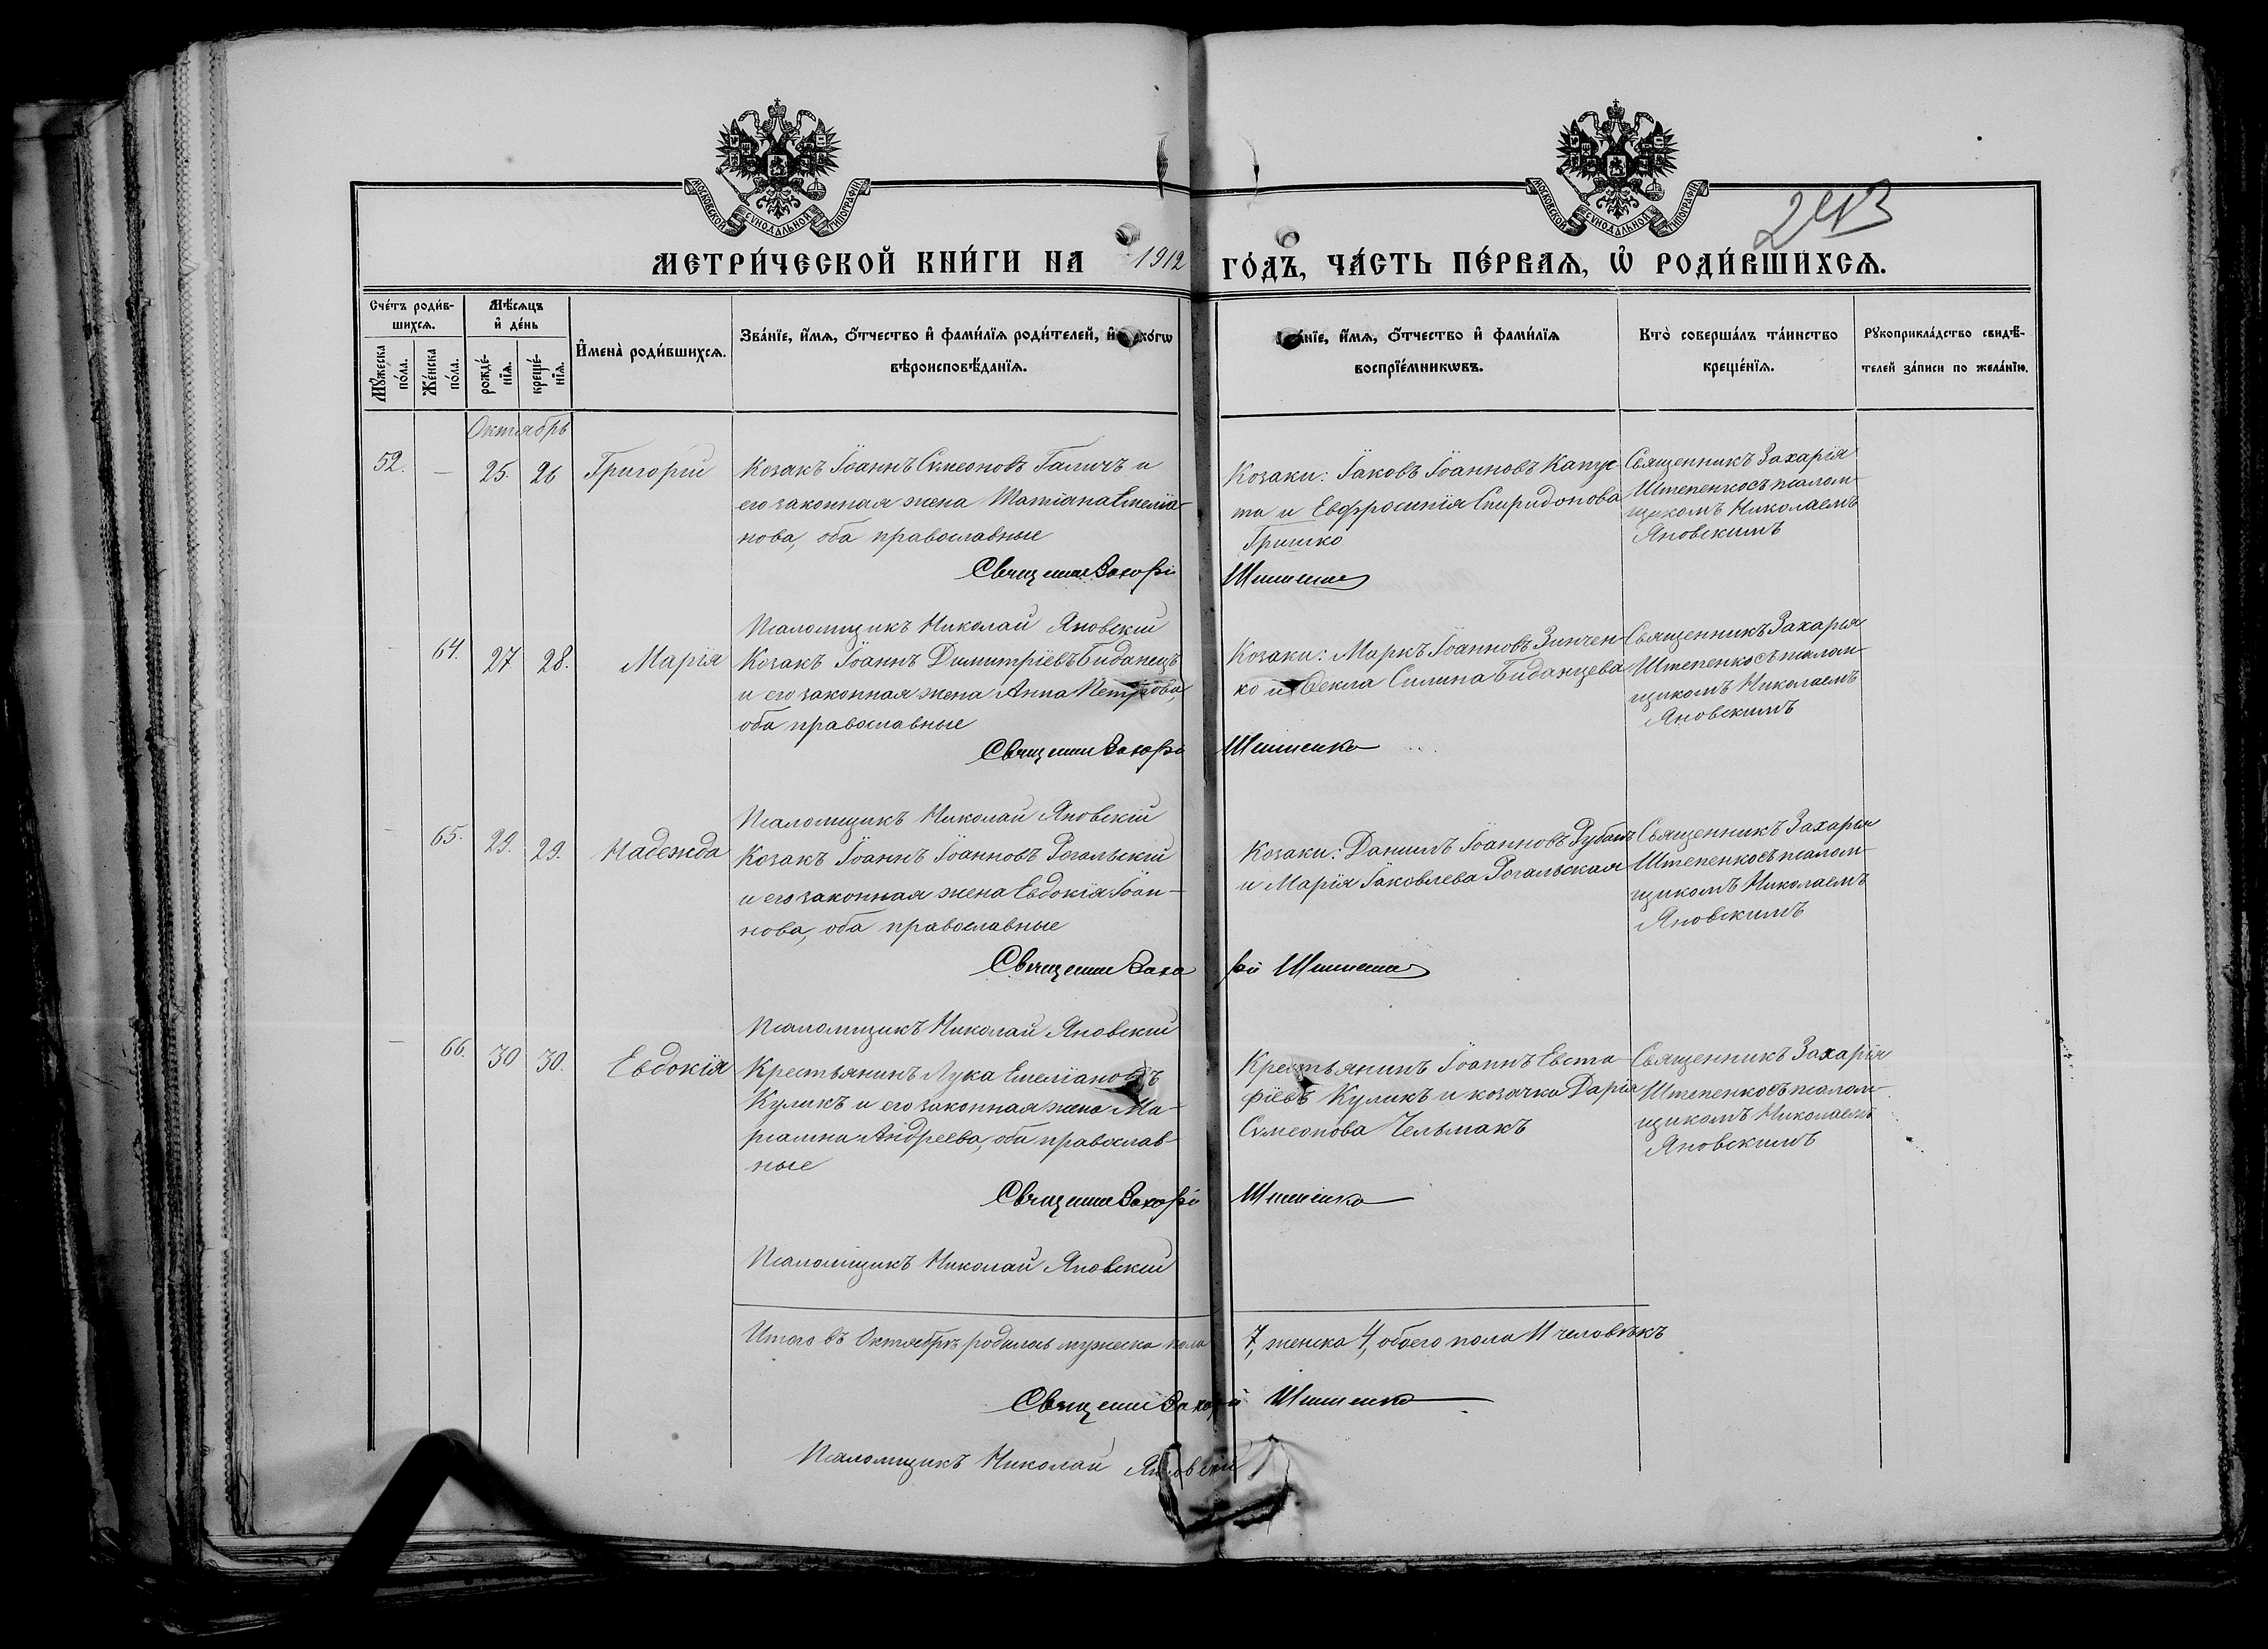 МОСКОВСКОЙ СѴНОДАЛЬНОЙ ТИПОГРАФІИ
МОСКОВСКОЙ СѴНОДАЛЬНОЙ ТИПОГРАФІИ
243
МЕТРИ́ЧЕСКОЙ КНИ́ГИ НА 1912 ГО́ДЪ, ЧА́СТЬ ПЕ́РВАѦ, Ѡ҆ РОДИ́ВШИХСѦ.
Сче́тъ роди́в-
шихсѧ.
Мꙋ́жеска
по́ла.
Же́нска
по́ла.
Мѣ́сѧцъ
и҆ де́нь
рожде́-
нїѧ.
креще́-
нїѧ.
И҆мена̀ роди́вшихсѧ.
Зва́нїе, и҆́мѧ, ѻ҆́тчество и҆ фамил́їѧ роди́телей, и҆
вѣроисповѣ́данїѧ.
и҆́мѧ, ѻ҆́тчество и҆ фами́лїѧ
воспрїе́мникѡвъ.
Кто̀ соверша́лъ та́инство
креще́нїѧ.
Рꙋкоприкла́дство свидѣ́-
телей за́писи по жела́нїю.
Октябрь
52. — 25. 26 Григорій
Козакъ Іоаннъ Сѵмеоновъ Галичъ и
его законная жена Татіана Емеліа-
нова, оба православные
Козаки: Іаковъ Іоанновъ Капус-
та и Евфросинія Спиридонова
Гришко
Священникъ Захарія
Штепенко съ псалом-
щикомъ Николаемъ
Яновскимъ
Священник Захарій Штепенко
Псаломщикъ Николай Яновскій
— 64. 27 28. Марія
Козакъ Іоаннъ Димитріевъ Биданецъ
и его законная жена Анна Петрова,
оба православные
Козаки: Маркъ Іоанновъ Зинчен-
ко и Ѳекла Силина Биданцева
Священникъ Захарія
Штепенко съ псалом-
щикомъ Николаемъ
Яновскимъ
Священник Захарій Штепенко
Псаломщикъ Николай Яновскій
— 65. 29. 29. Надежда
Козакъ Іоаннъ Іоанновъ Рогальскій
и его законная жена Евдокія Іоан-
нова, оба православные
Козаки: Даніилъ Іоанновъ Рубанъ
и Марія Іаковлева Рогальская
Священникъ Захарія
Штепенко съ псалом-
щикомъ Николаемъ
Яновскимъ
Священник Захарій Штепенко
Псаломщикъ Николай Яновскій
— 66. 30 30. Евдокія
Крестьянинъ Лука Емеліановъ
Куликъ и его законная жена Ма-
ріамна Андреева, оба православ-
ные
Крестьянинъ Іоаннъ Евста-
фіевъ Куликъ и козачка Дарія
Сѵмеонова Чельмакъ
Священникъ Захарія
Штепенко съ псалом-
щикомъ Николаемъ
Яновскимъ
Священник Захарій Штепенко
Псаломщикъ Николай Яновскій
Итого въ Октябрѣ родилось мужеска пола 7, женска 4, обоего пола 11 человѣкъ
Священник Захарій Штепенко
Псаломщикъ Николай Яновскій